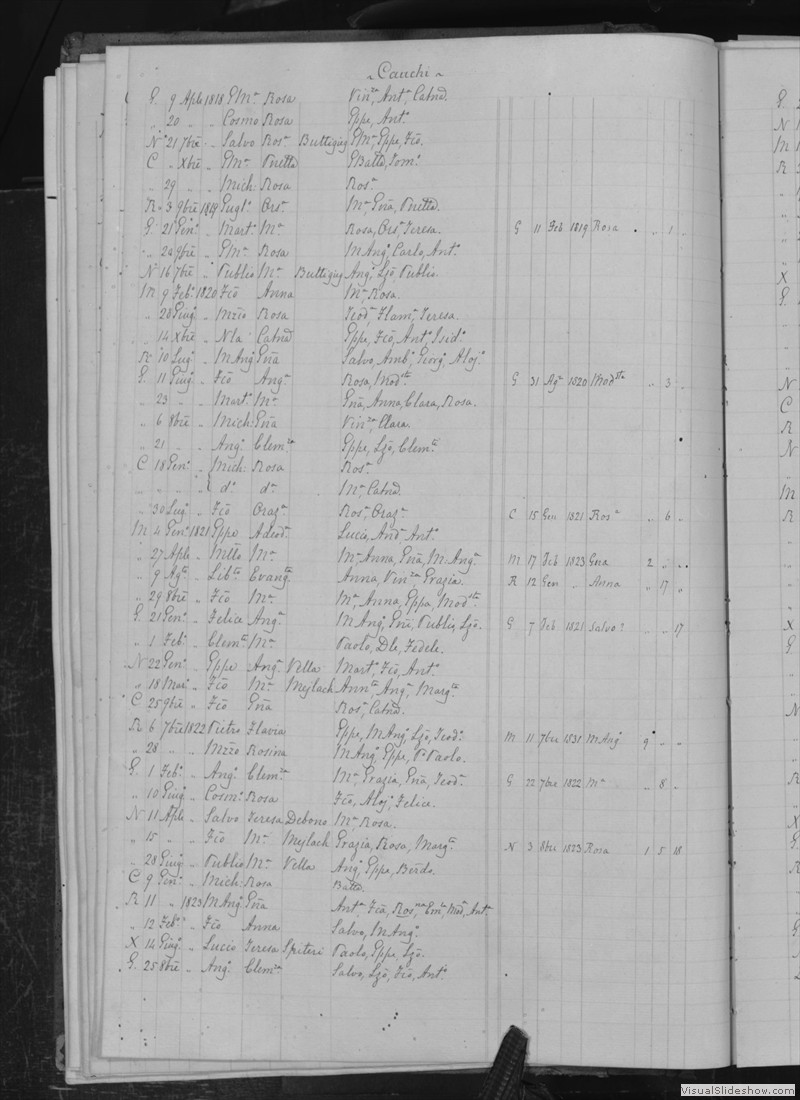 ~ Cauchi ~
G. 9 Aple 1818 GMa Rosa Vinza, Anta, Catnd.
" 20 " " Cosmo Rosa Gppe, Anto
No 21 7bre " Salvo Rosa Buttigieg GMa, Gppe, Fco.
C " Xbre " GMa Vnetta GBatta, Domo
" 29 " " Mich: Rosa Rosa
R 3 9bre 1819 Orsa Ma
G. 21 Geno " Marto Ma Rosa, Orsa, Teresa. G 11 Feb 1819 Rosa " " 1 "
" 24 9bre " GMa Rosa MAngo, Carlo, Anto
N 16 7bre " Publio Ma Buttigieg Ango, Lzo, Publio.
M 9 Febo 1820 Fco Anna Ma, Rosa.
" 28 " Rosa Teresa.
" 14 Xbre " Nla Catnd Gppe, Fco, Anto, Isido
R 10 Lugo " MAngo Salvo, Ambo, Giorgo, Alojo
G. 11 Giugo " Fco Anga Rosa, Modsta G 31 Ago 1820 Modsta " 3 "
" 23 " " Marto Ma Anna, Clara, Rosa.
" 6 8bre " Mich: Vinza, Clara.
" 21 " " Ango Clemza Gppe, Lzo, Clemte
C 18 Geno " Mich: Rosa Rosa
" " " " do do Ma, Catnd.
" 30 Lugo " Fco Graza Rosa, Graza C 15 Gen 1821 Rosa " 6 "
M 4 Geno 1821 Gppe Adeoda Lucia, Anda, Anta
" 27 Aple " Mllo Ma Ma, Anna, M.Anga M 17 Feb 1823 2 " "
" 9 Agto " Libto Evangta Anna, Vinza, Grazia. R 12 Gen " Anna " 17 "
" 29 8bre " Fco Ma Ma, Anna, Gppa, Modsta
G. 21 Geno " Felice Anga MAngo, Publio, Lzo. G 7 Feb 1821 Salvo? " " 17
" 1 Febo " Clemte Ma Paolo, Fedele.
N 22 Geno " Gppe Anga Vella Marto, Fco, Anto
" 18 Maro " Fco Ma Mejlach Annta, Anga, Margta
C 25 9bre " Fco Rosa, Catnd.
R 6 7bre 1822 Pietro Flavia Gppe, MAngo, Lzo, Teodo M 11 7bre 1831 MAngo 9 " "
" 28 " " Rosina MAngo, Gppe, Paolo.
G. 1 Febo " Ango Clemza Ma, Grazia, Teoda G 22 7bre 1822 Ma " 8 "
" 10 Giugo " Cosmo Rosa Fco, Alojo, Felice.
N 11 Aple " Salvo Teresa Debono Ma, Rosa.
" 15 " " Fco Ma Mejlach Grazia, Rosa, Margta N 3 8bre 1823 Rosa 1 5 18
" 28 Giugo " Publio Ma Vella Ango, Gppe, Berdo.
C 9 Geno " Mich: Rosa Batta.
R 11 " 1823 MAngo Anta, Fca, Rosna, Anta
" 12 Febo " Fco Anna Salvo, MAngo
X 14 Giugo " Lucio Teresa Spiteri Paolo, Gppe, Lzo.
G. 25 8bre " Ango Clemza Salvo, Lzo, Fco, Anto
G
N
M
R
X
G
N
C
R
N
M
R
X
G
N
R
X
G
R
VisualSlideshow.com